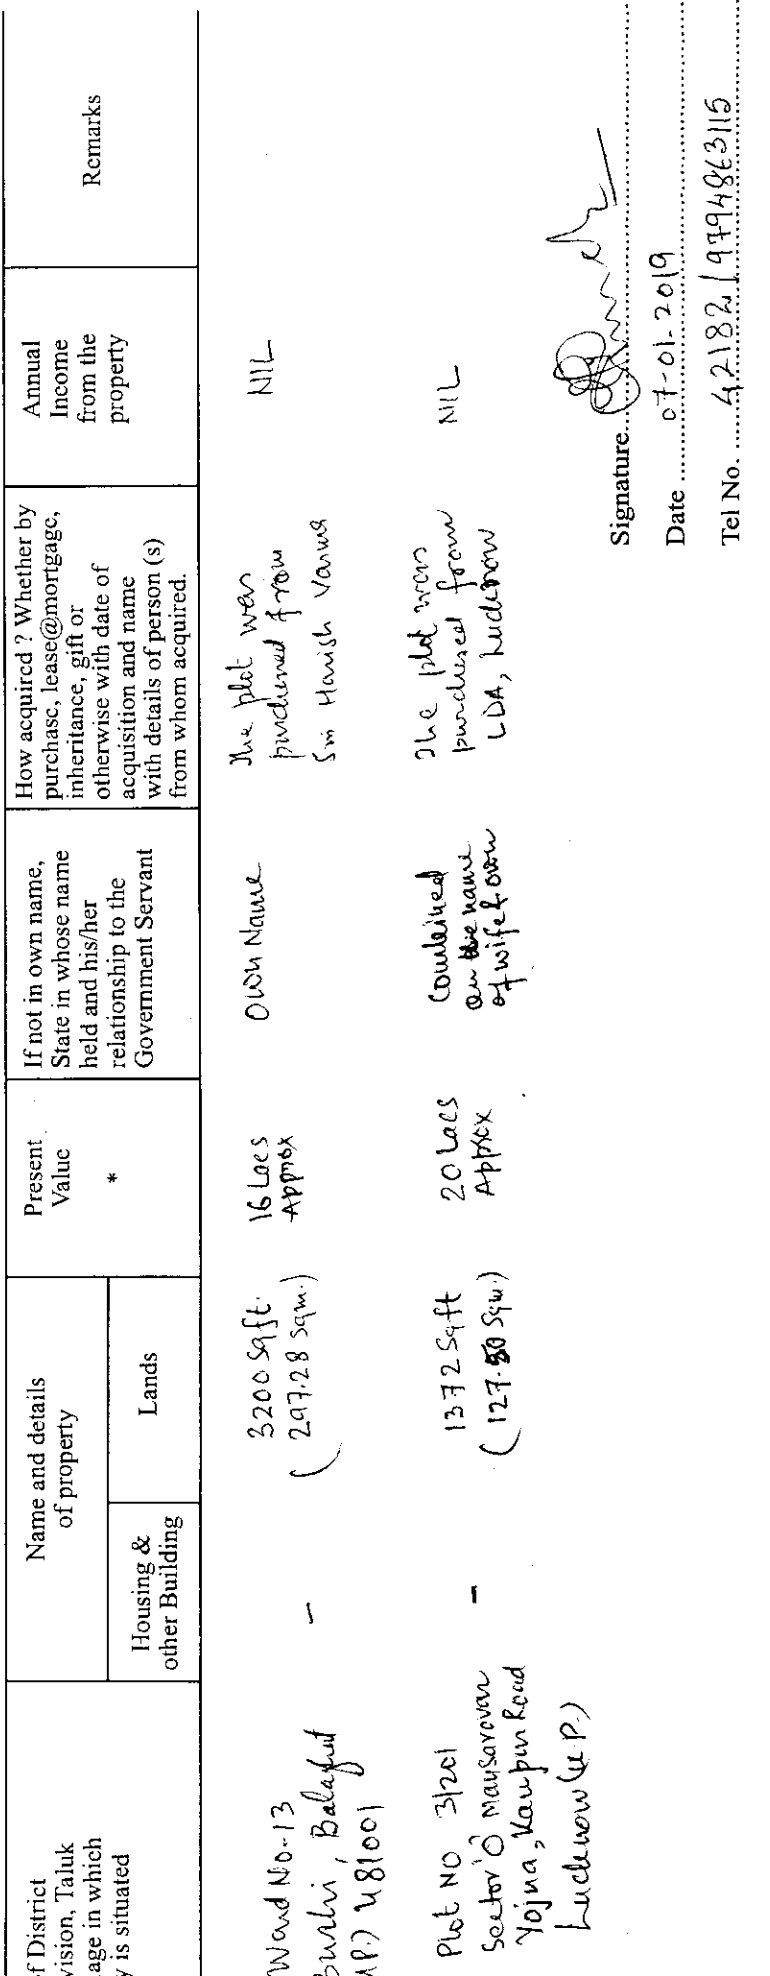 of District
vision, Taluk
age in which
y is situated
Name and details
of property
Housing &
other Building
Lands
Present
Value
*
If not in own name,
State in whose name
held and his/her
relationship to the
Government Servant
How acquired ? Whether by
purchase, lease@mortgage,
inheritance, gift or
otherwise with date of
acquisition and name
with details of person (s)
from whom acquired.
Annual
Income
from the
property
Remarks
Ward No-13
Burhi, Balaghat
481001
-
3200 Sqft.
(297.28 Sqm.)
16 Lacs
Approx
Own Name
The plot was
purchased from
Sri Harish Varma
NIL
Plot NO 3/201
Sector 'O' Mansarovar
Yojna, Kanpur Road
Lucknow (U.P.)
-
1372 Sqft
(127.50 Sqm.)
20 Lacs
Approx
Combined
on the name
of wife & own
The plot was
purchased from
LDA, Lucknow
NIL
Signature
Date 07-01-2019
Tel No. 42182 / 9794863115